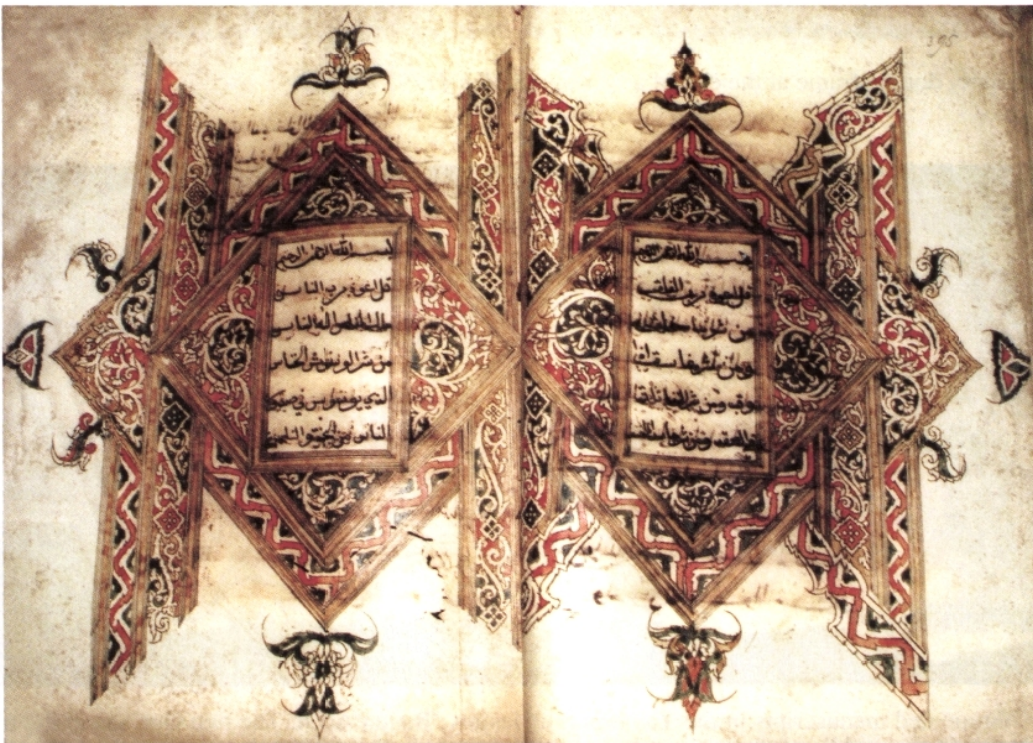 بسم الله الرحمن الرحيم
قل اعوذ برب الفلق
من شر ما خلق
ومن شر غاسق اذا
وقب ومن شر النفاثات
العقد ومن شر
بسم الله الرحمن الرحيم
قل اعوذ برب الناس
ملك الناس اله الناس
من شر الوسواس الخناس
الذي يوسوس في صدور
الناس من الجنة والناس
395